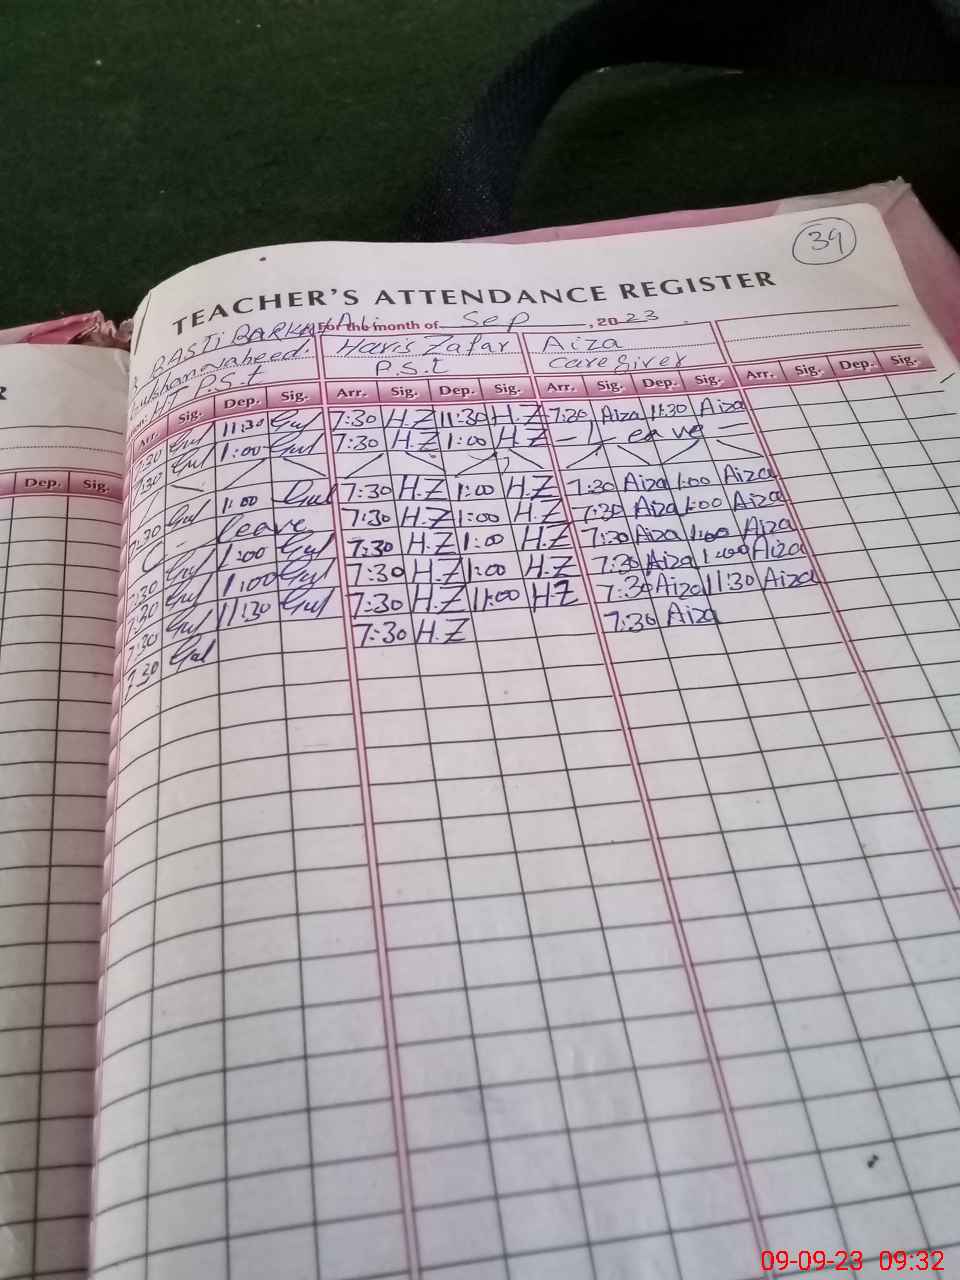 39
TEACHER'S ATTENDANCE REGISTER
BASTI BARKAT ALI For the month of Sep, 2023
Gulshan Naheed. Haris Zafar Aiza
HT P.S.t P.S.t care giver
R Arr. Sig. Dep. Sig. Arr. Sig. Dep. Sig. Arr. Sig. Dep. Sig. Arr. Sig. Dep. Sig.
Dep. Sig.
7:30 Gul 11:30 Gul 7:30 H.Z 11:30 H.Z 7:30 Aiza 11:30 Aiza
7:30 Gul 1:00 Gul 7:30 H.Z 1:00 H.Z - Leave -
7:30 Gul 1:00 Gul 7:30 H.Z 1:00 H.Z 7:30 Aiza 1:00 Aiza
C - leave 7:30 H.Z 1:00 H.Z 7:30 Aiza 1:00 Aiza
7:30 Gul 1:00 Gul 7:30 H.Z 1:00 H.Z 7:30 Aiza 1:00 Aiza
7:30 Gul 1:00 Gul 7:30 H.Z 1:00 H.Z 7:30 Aiza 1:00 Aiza
7:30 Gul 11:30 Gul 7:30 H.Z 11:00 H.Z 7:30 Aiza 11:30 Aiza
7:30 Gul 7:30 H.Z 7:30 Aiza
09-09-23 09:32